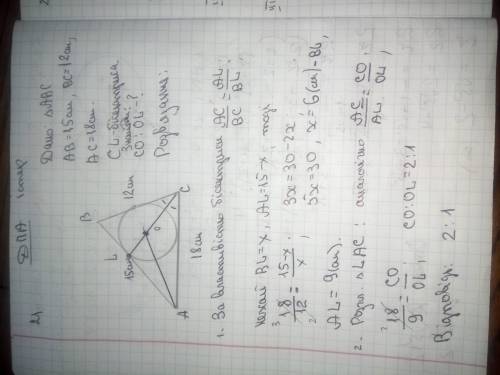 21 ДПА
Дано: △ABC
AB=15см, BC=12см,
AC=18см.
CL-бісектриса
Знайти:
CO:OL-?
Розв'язання:
B
12см
C
L
O
15см
18см
A
1. За властивістю бісектриси AC/BC = AL/BL
нехай BL=x, AL=15-x, тоді
18/12 = 15-x/x ; 3x=30-2x
3 2
5x=30, x=6(см)-BL,
AL=9(см).
2. Розгл. △LAC: аналогічно AC/AL = CO/OL ;
18/9 = CO/OL ; CO:OL=2:1
Відповідь: 2:1